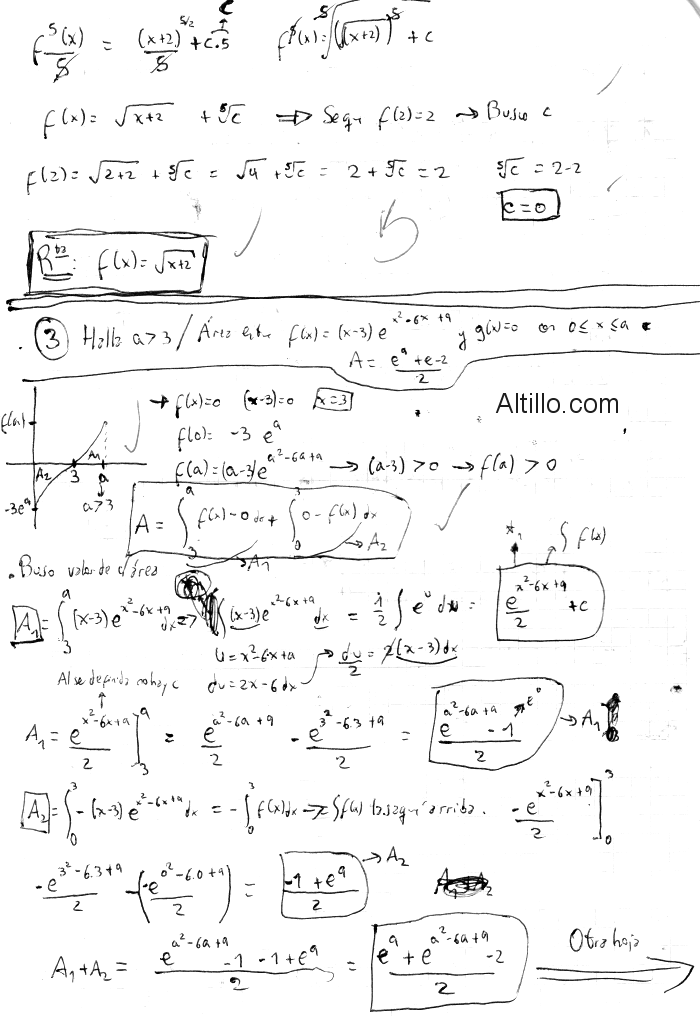 C
f⁵(x)/5 = (x+2)^(5/2)/5 + c.5    f⁵(x) = ⁵√(√(x+2))⁵ + c
f(x) = √x+2 + ⁵√c ⇒ Segun f(2)=2 → Busco c
f(2) = √2+2 + ⁵√c = √4 + ⁵√c = 2 + ⁵√c = 2    ⁵√c = 2-2
c=0
Rta: f(x) = √x+2
3 Halla a>3 / Área entre f(x) = (x-3) e^(x²-6x+9) y g(x)=0 con 0≤x≤a
A = (e⁹+e-2)/2
→ f(x)=0 (x-3)=0 x=3
Altillo.com
f(a)
f(0) = -3 e⁹
A₁
f(a) = (a-3) e^(a²-6a+9) → (a-3) > 0 → f(a) > 0
A₂ 3 a
-3e⁹ a>3
A = ∫₃ᵃ f(x)-0 dx + ∫₀³ 0-f(x) dx
→A₁ →A₂
∫f(x)
. Busco valor de c/área
A₁ = ∫₃ᵃ (x-3) e^(x²-6x+9) dx => ∫(x-3) e^(x²-6x+9) dx = 1/2 ∫ e^u du = e^(x²-6x+9)/2 + c
u = x²-6x+9 → du/2 = 2(x-3)dx
Al ser definida no hay c du = 2x-6 dx
A₁ = e^(x²-6x+9)/2 ]₃ᵃ = e^(a²-6a+9)/2 - e^(3²-6.3+9)/2 = (e^(a²-6a+9) - 1)/2 → A₁
e⁰
A₂ = ∫₀³ -(x-3) e^(x²-6x+9) dx = -∫₀³ f(x)dx → ∫f(x) la saqué arriba. -e^(x²-6x+9)/2 ]₀³
-e^(3²-6.3+9)/2 - (-e^(0²-6.0+9)/2) = (-1+e⁹)/2 → A₂
A₁+A₂ = (e^(a²-6a+9) -1 -1+e⁹)/2 = (e⁹+e^(a²-6a+9) -2)/2 Otra hoja